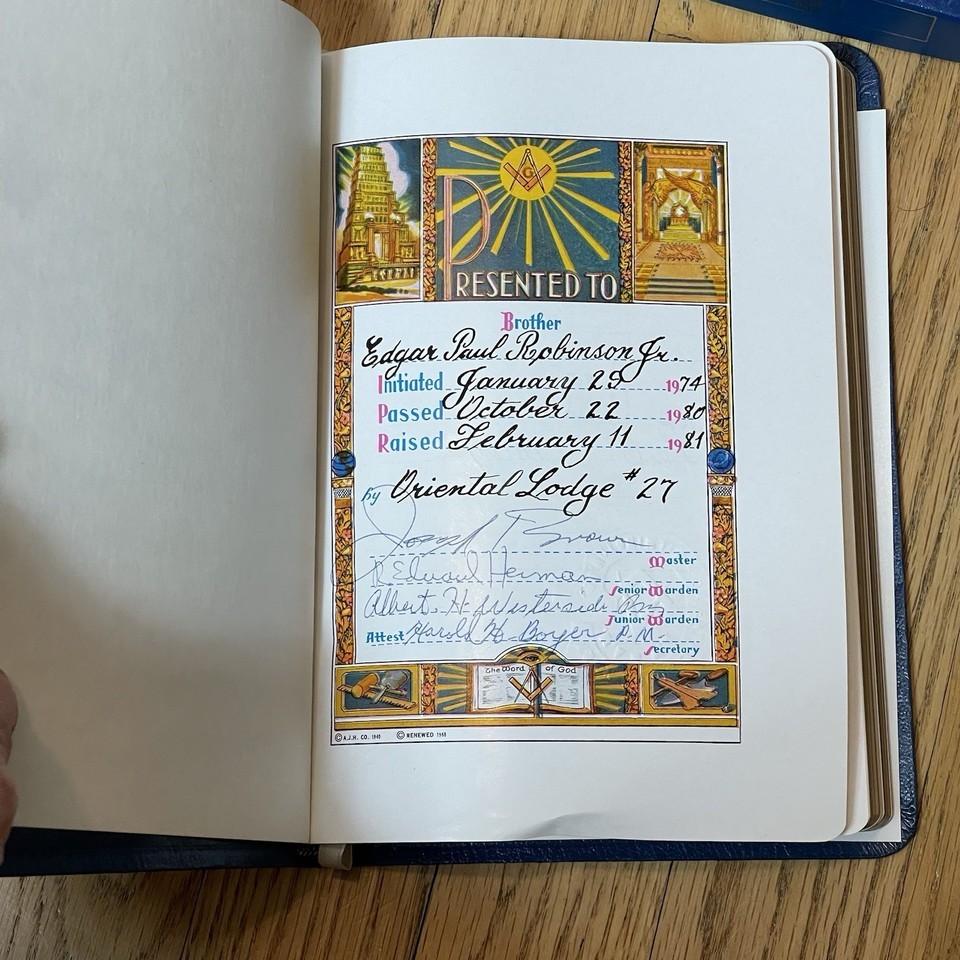 G
PRESENTED TO
Brother
Edgar Paul Robinson Jr.
Initiated January 29 1974
Passed October 22 1980
Raised February 11 1981
by Oriental Lodge #27
Joseph T Brown
Master
R Edward Herman
Senior Warden
Albert H. Westerside
Junior Warden
Attest Harold H. Boyer P.M.
Secretary
The Word of God
© A.J.H. CO. 1940 © RENEWED 1968